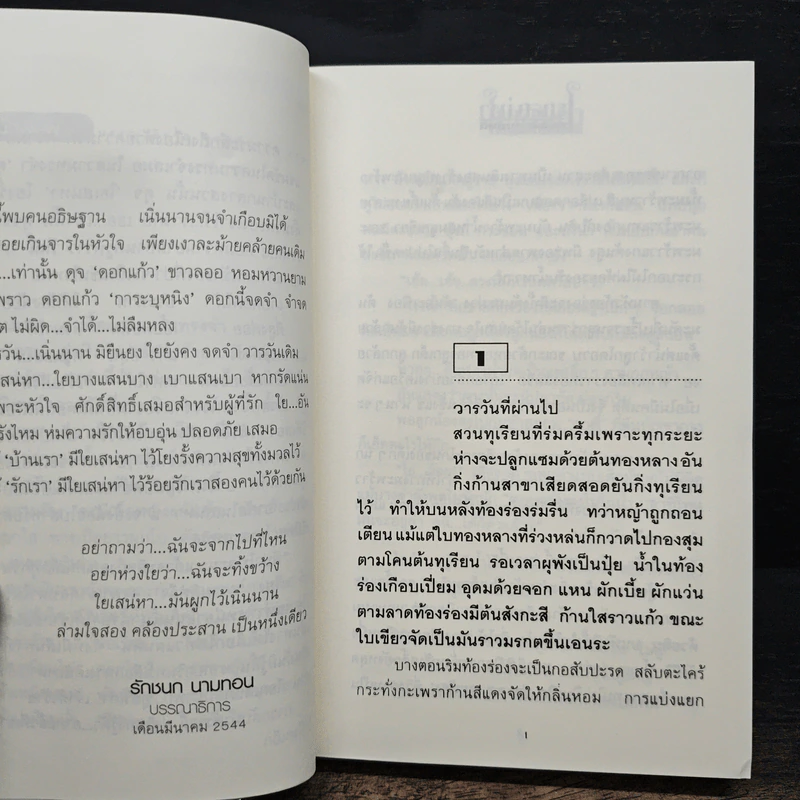 พบคนอธิษฐาน เนิ่นนานจนจำเกือบมิได้
อยเกินจารในหัวใจ เพียงเงาละม้ายคล้ายคนเดิม
...เท่านั้น ดุจ ‘ดอกแก้ว’ ขาวลออ หอมหวานยาม
พราว ดอกแก้ว ‘การะบุหนิง’ ดอกนี้จดจำ จำจด
ต ไม่ผิด...จำได้...ไม่ลืมหลง
รวัน...เนิ่นนาน มิยืนยง ใยยังคง จดจำ วารวันเดิม
เสน่หา...ใยบางแสนบาง เบาแสนเบา หากรัดแน่น
พาะหัวใจ ศักดิ์สิทธิ์เสมอสำหรับผู้ที่รัก ใย...อัน
รังไหม ห่มความรักให้อบอุ่น ปลอดภัย เสมอ
‘บ้านเรา’ มีใยเสน่หา ไว้โยงรั้งความสุขทั้งมวลไว้
‘รักเรา’ มีใยเสน่หา ไว้ร้อยรักเราสองคนไว้ด้วยกัน
อย่าถามว่า...ฉันจะจากไปที่ไหน
อย่าห่วงใยว่า...ฉันจะทิ้งขว้าง
ใยเสน่หา...มันผูกไว้เนิ่นนาน
ล่ามใจสอง คล้องประสาน เป็นหนึ่งเดียว
รักชนก นามทอน
บรรณาธิการ
เดือนมีนาคม 2544
1
วารวันที่ผ่านไป
สวนทุเรียนที่ร่มครึ้มเพราะทุกระยะ
ห่างจะปลูกแซมด้วยต้นทองหลาง อัน
กิ่งก้านสาขาเสียดสอดยันกิ่งทุเรียน
ไว้ ทำให้บนหลังท้องร่องร่มรื่น ทว่าหญ้าถูกถอน
เตียน แม้แต่ใบทองหลางที่ร่วงหล่นก็กวาดไปกองสุม
ตามโคนต้นทุเรียน รอเวลาผุพังเป็นปุ๋ย น้ำในท้อง
ร่องเกือบเปี่ยม อุดมด้วยจอก แหน ผักเบี้ย ผักแว่น
ตามลาดท้องร่องมีต้นสังกะสี ก้านใสราวแก้ว ขณะ
ใบเขียวจัดเป็นมันราวมรกตขึ้นเอนระ
บางตอนริมท้องร่องจะเป็นกอสับปะรด สลับตะไคร้
กระทั่งกะเพราก้านสีแดงจัดให้กลิ่นหอม การแบ่งแยก
1